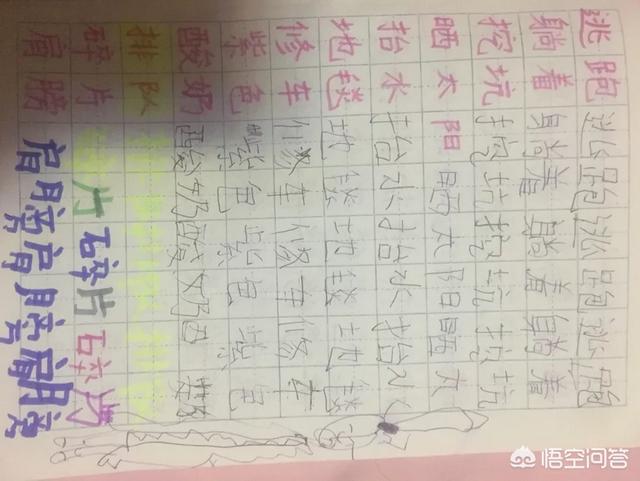 逃跑逃跑逃跑逃跑
躺着躺着躺着躺着
挖坑挖坑挖坑挖坑
晒太阳晒太阳晒太
抬水抬水抬水抬水
地毯地毯地毯地毯
修车修车修车修车
紫色紫色紫色紫色
酸奶酸奶酸奶
排队排队排队排队
碎片碎片碎片碎片
肩膀肩膀肩膀肩膀
悟空问答